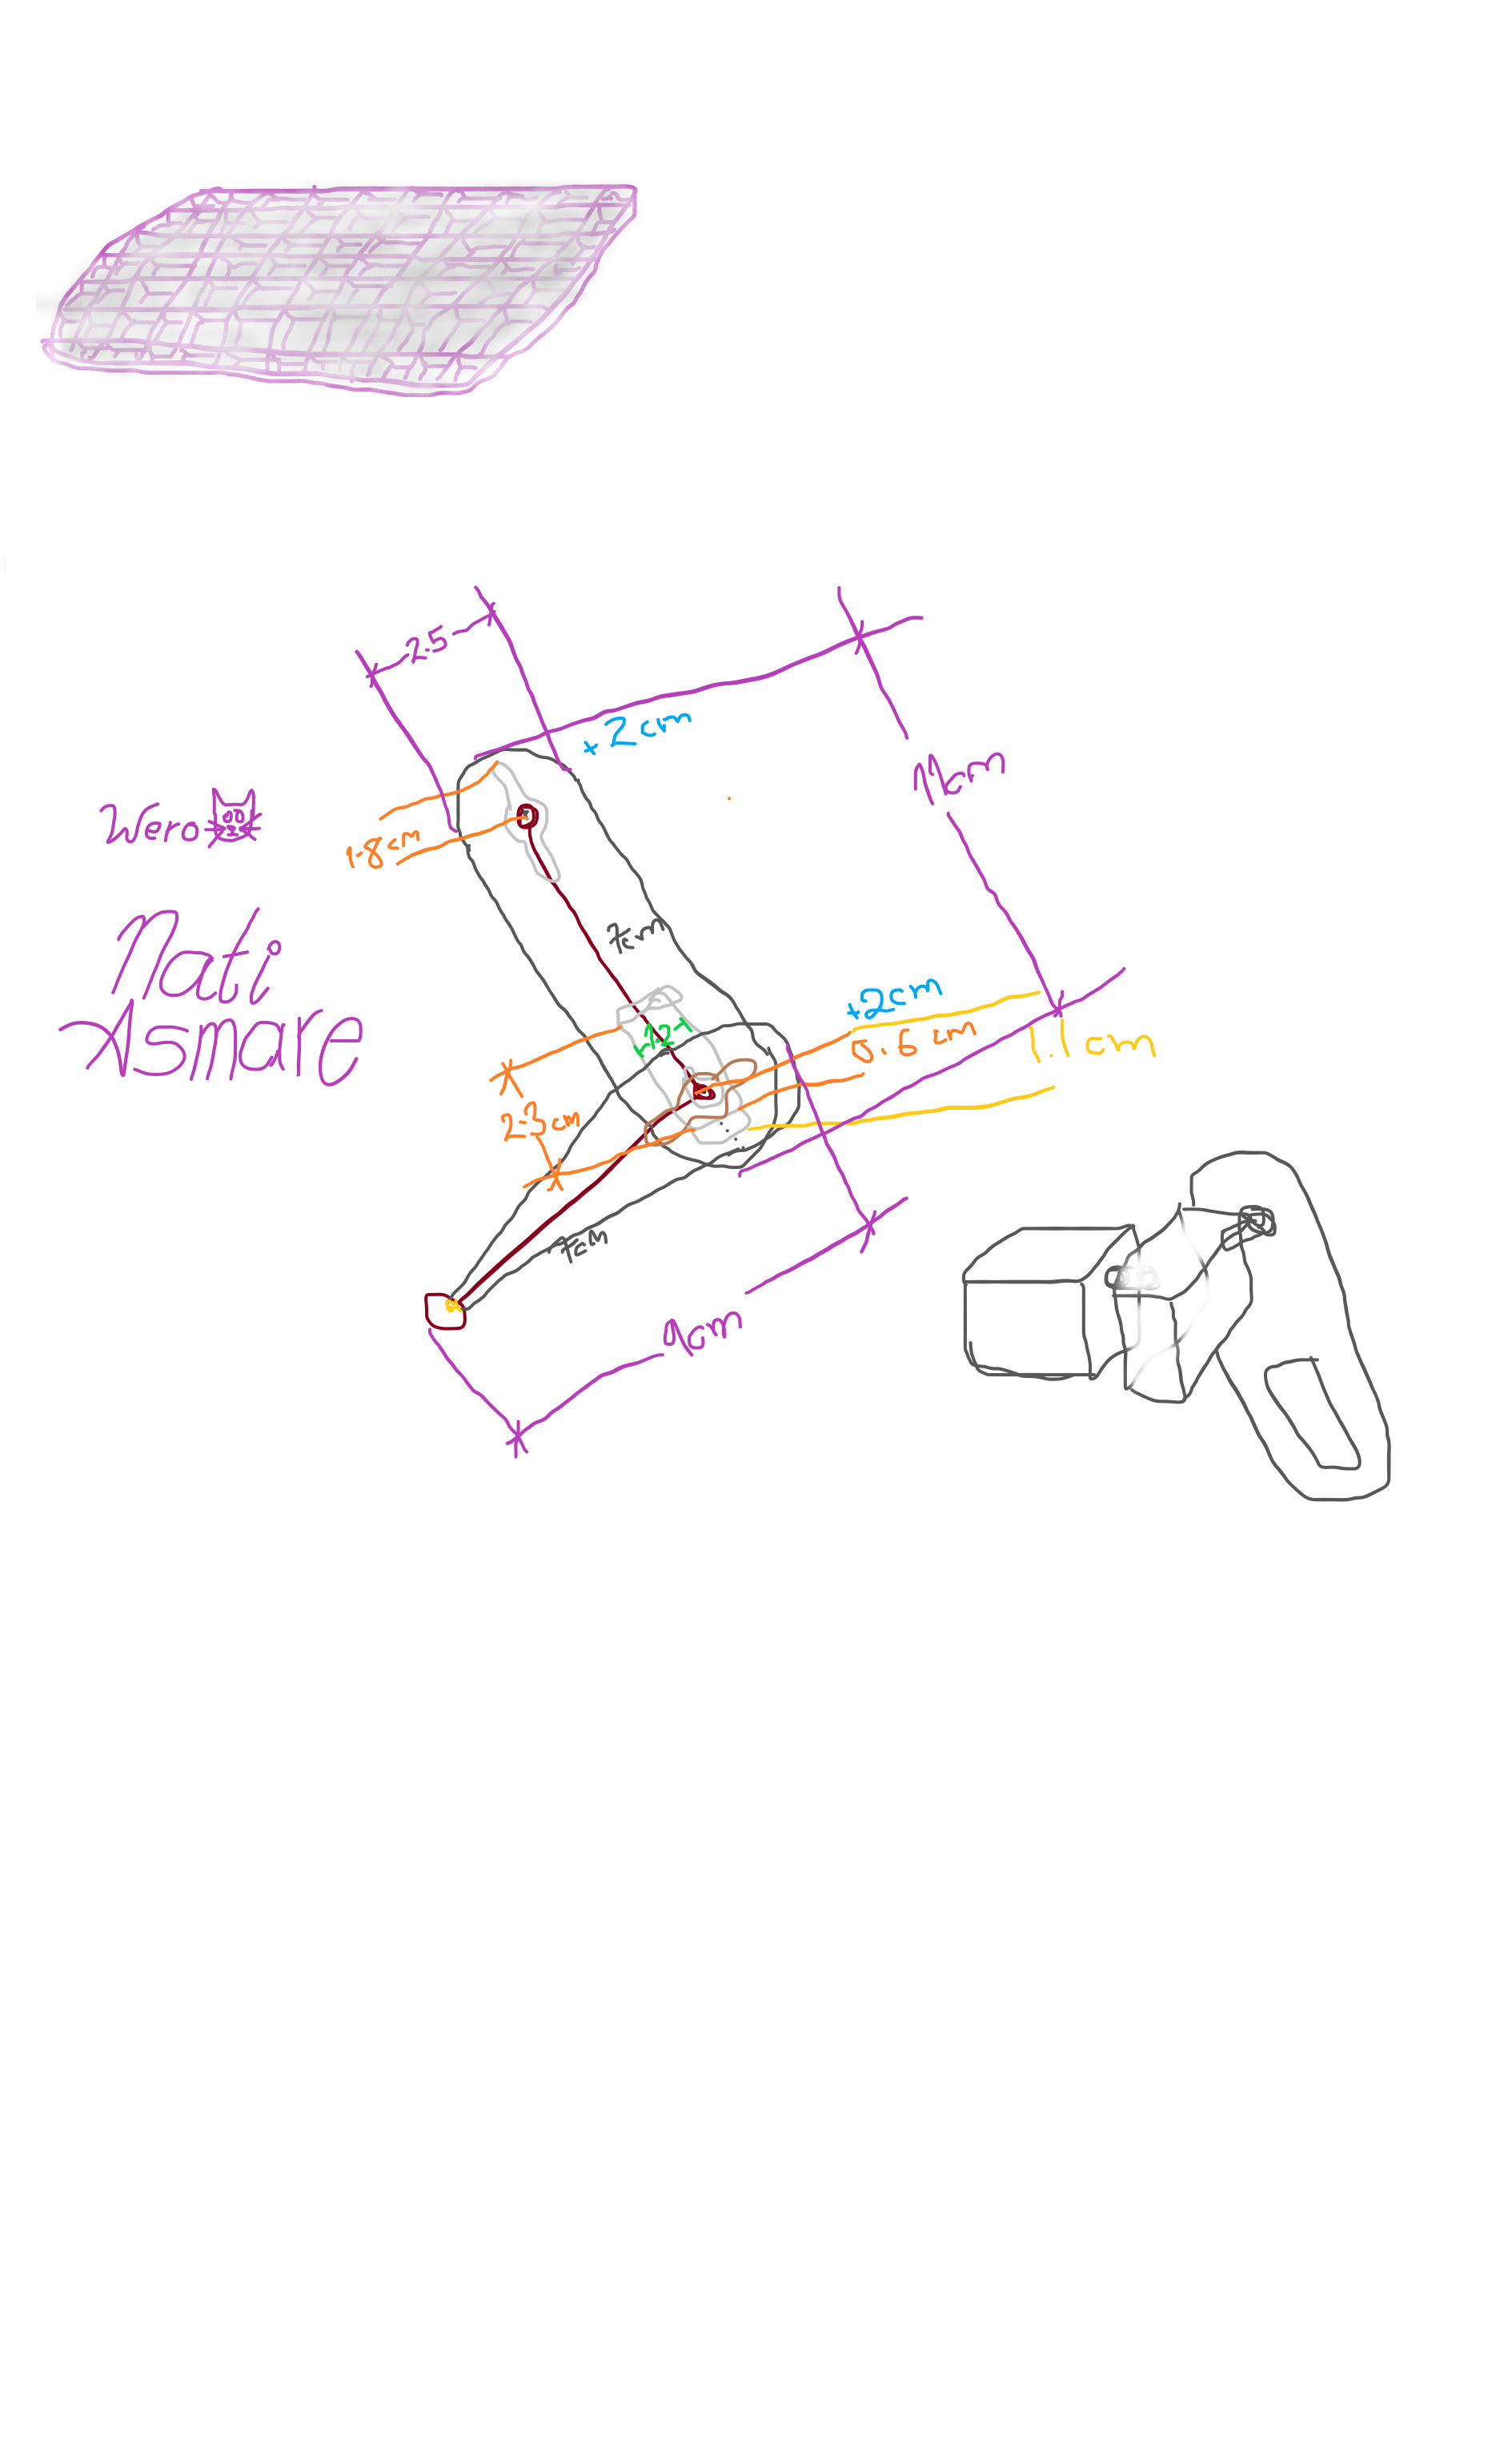 2.5
+2cm
11cm
Vero
1.8cm
Nati
7cm
+2cm
1.2
0.6 cm
1.1 cm
2.3cm
7cm
9cm